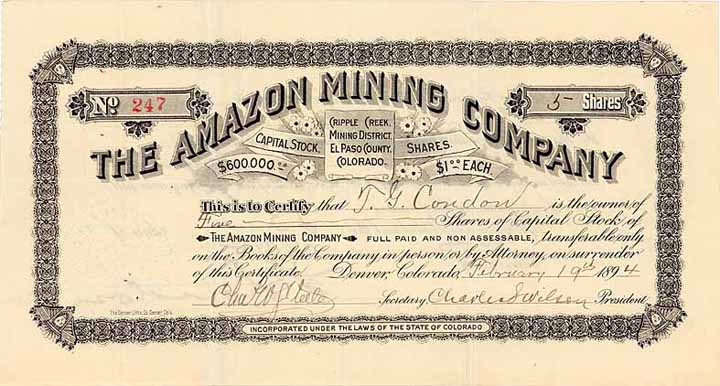 No 247
5 Shares
THE AMAZON MINING COMPANY
CAPITAL STOCK,
$600.000.00
CRIPPLE CREEK,
MINING DISTRICT,
EL PASO COUNTY,
COLORADO.
SHARES.
$1.00 EACH.
This is to Certify that T. G. Condon is the owner of
Five Shares of Capital Stock of
THE AMAZON MINING COMPANY FULL PAID AND NON ASSESSABLE, transferable only
on the Books of the Company in person or by Attorney, on surrender
of this Certificate. Denver, Colorado, February 19th 1894
Secretary. Charles S Wilson President
The Denver Litho. Co. Denver, Colo.
INCORPORATED UNDER THE LAWS OF THE STATE OF COLORADO